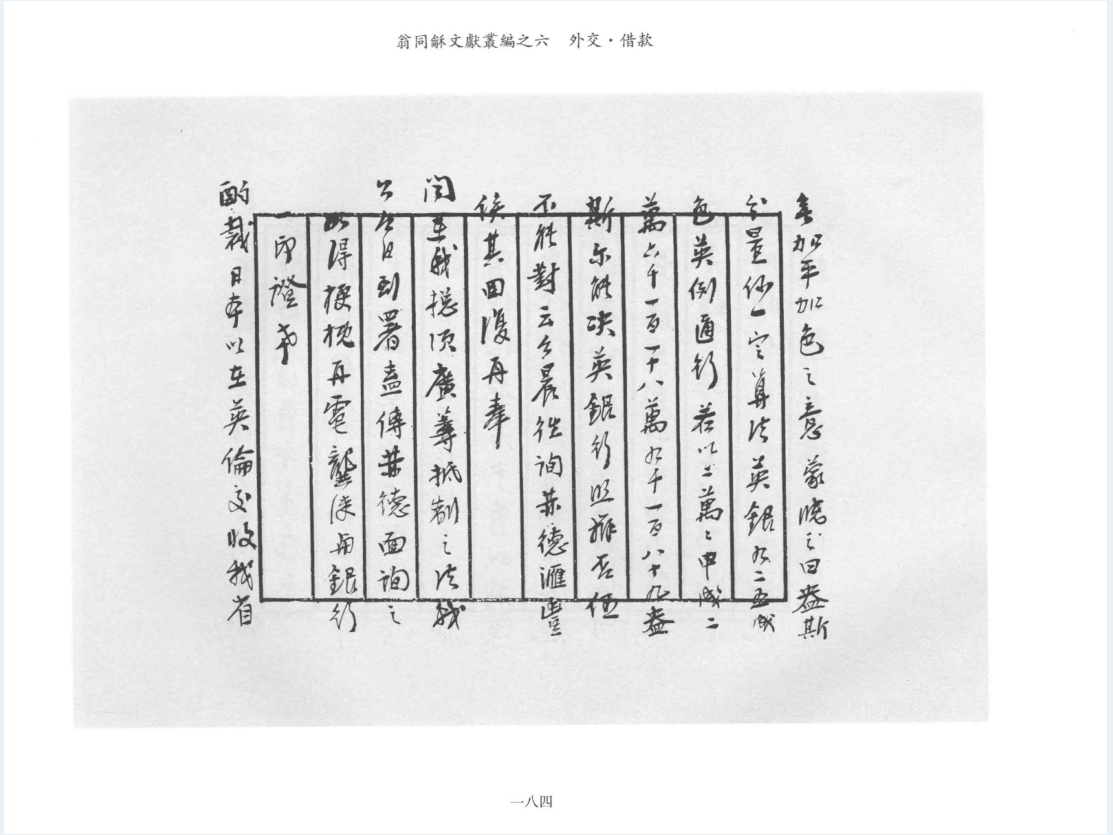 翁同龢文獻叢編之六　外交・借款
無加平加色之意蒙曉之曰盎斯
分量仍一定算法英銀九二五成
色英例通行若以二萬之申成二
萬六千一百一十八萬九千一百八十九盎
斯亦能決英銀行照辦否伍
不能對云今晨往詢赫德滙豐
俟其回復再奉
聞至我擬須廣籌抵制之法我
公今日到署盍傳赫德面詢之
如得梗概再電龔使與銀行
一印證希
酌裁日本以在英倫交收我省
一八四